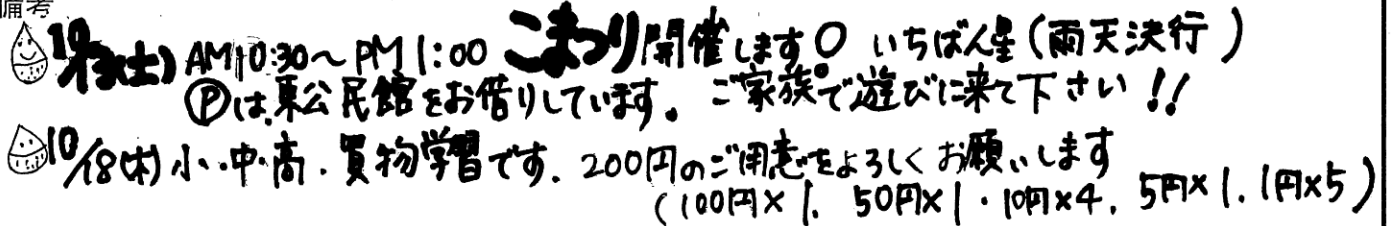 備考
10/13(土) AM10:30～PM1:00 こまつり開催します○ いちばん星(雨天決行)
Ⓟは、東公民館をお借りしています。ご家族で遊びに来て下さい!!
10/18(木) 小・中・高・買物学習です。200円のご用意をよろしくお願いします
(100円×1、50円×1・10円×4、5円×1、1円×5)